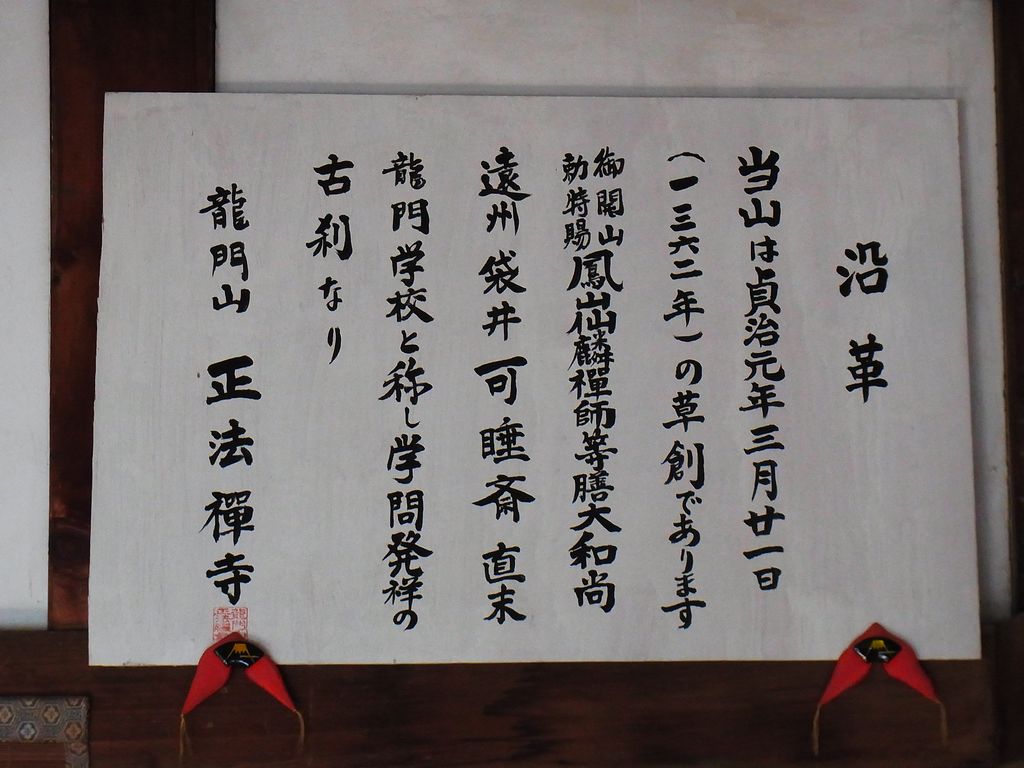 沿革
当山は貞治元年三月廿一日
(一三六二年)の草創であります
御開山
勅特賜
鳳山仙麟禪師等膳大和尚
遠州袋井可睡斎直末
龍門学校と称し学問発祥の
古刹なり
龍門山 正法禪寺